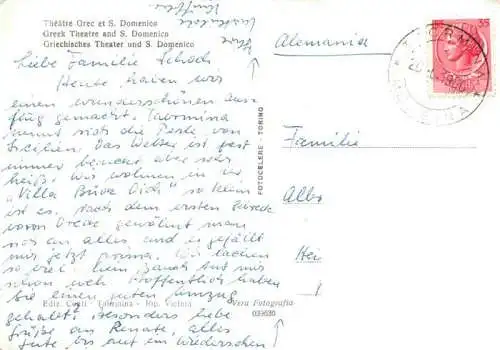 Théâtre Grec et S. Domenico
Greek Theatre and S. Domenico
Griechisches Theater und S. Domenico
Liebe Familie Schoch
Heute haben wir
einen wunderschönen Aus-
flug gemacht. Taormina
nennt sich die Perle von
Sizilien. Das Wetter ist fast
immer bedeckt aber sehr
heiß. Wir wohnen in der
"Villa Bück Dich" so klein
ist es. Nach dem ersten Schreck
vorm Dreck gewöhnt man
sich an alles und es gefällt
mir jetzt prima. Wir lachen
so viel. Mein Bauch tut mir
schon weh. Hoffentlich haben
Sie einen guten Umzug
gehabt. Besonders liebe
Grüße an Renate, alles
Gute bis auf ein Wiedersehen
Ediz. Conti - Taormina - Rip. Vietata
Vera Fotografia
039630
FOTOCELERE - TORINO
Alemania
35
TAORMINA
MESSINA
Familie